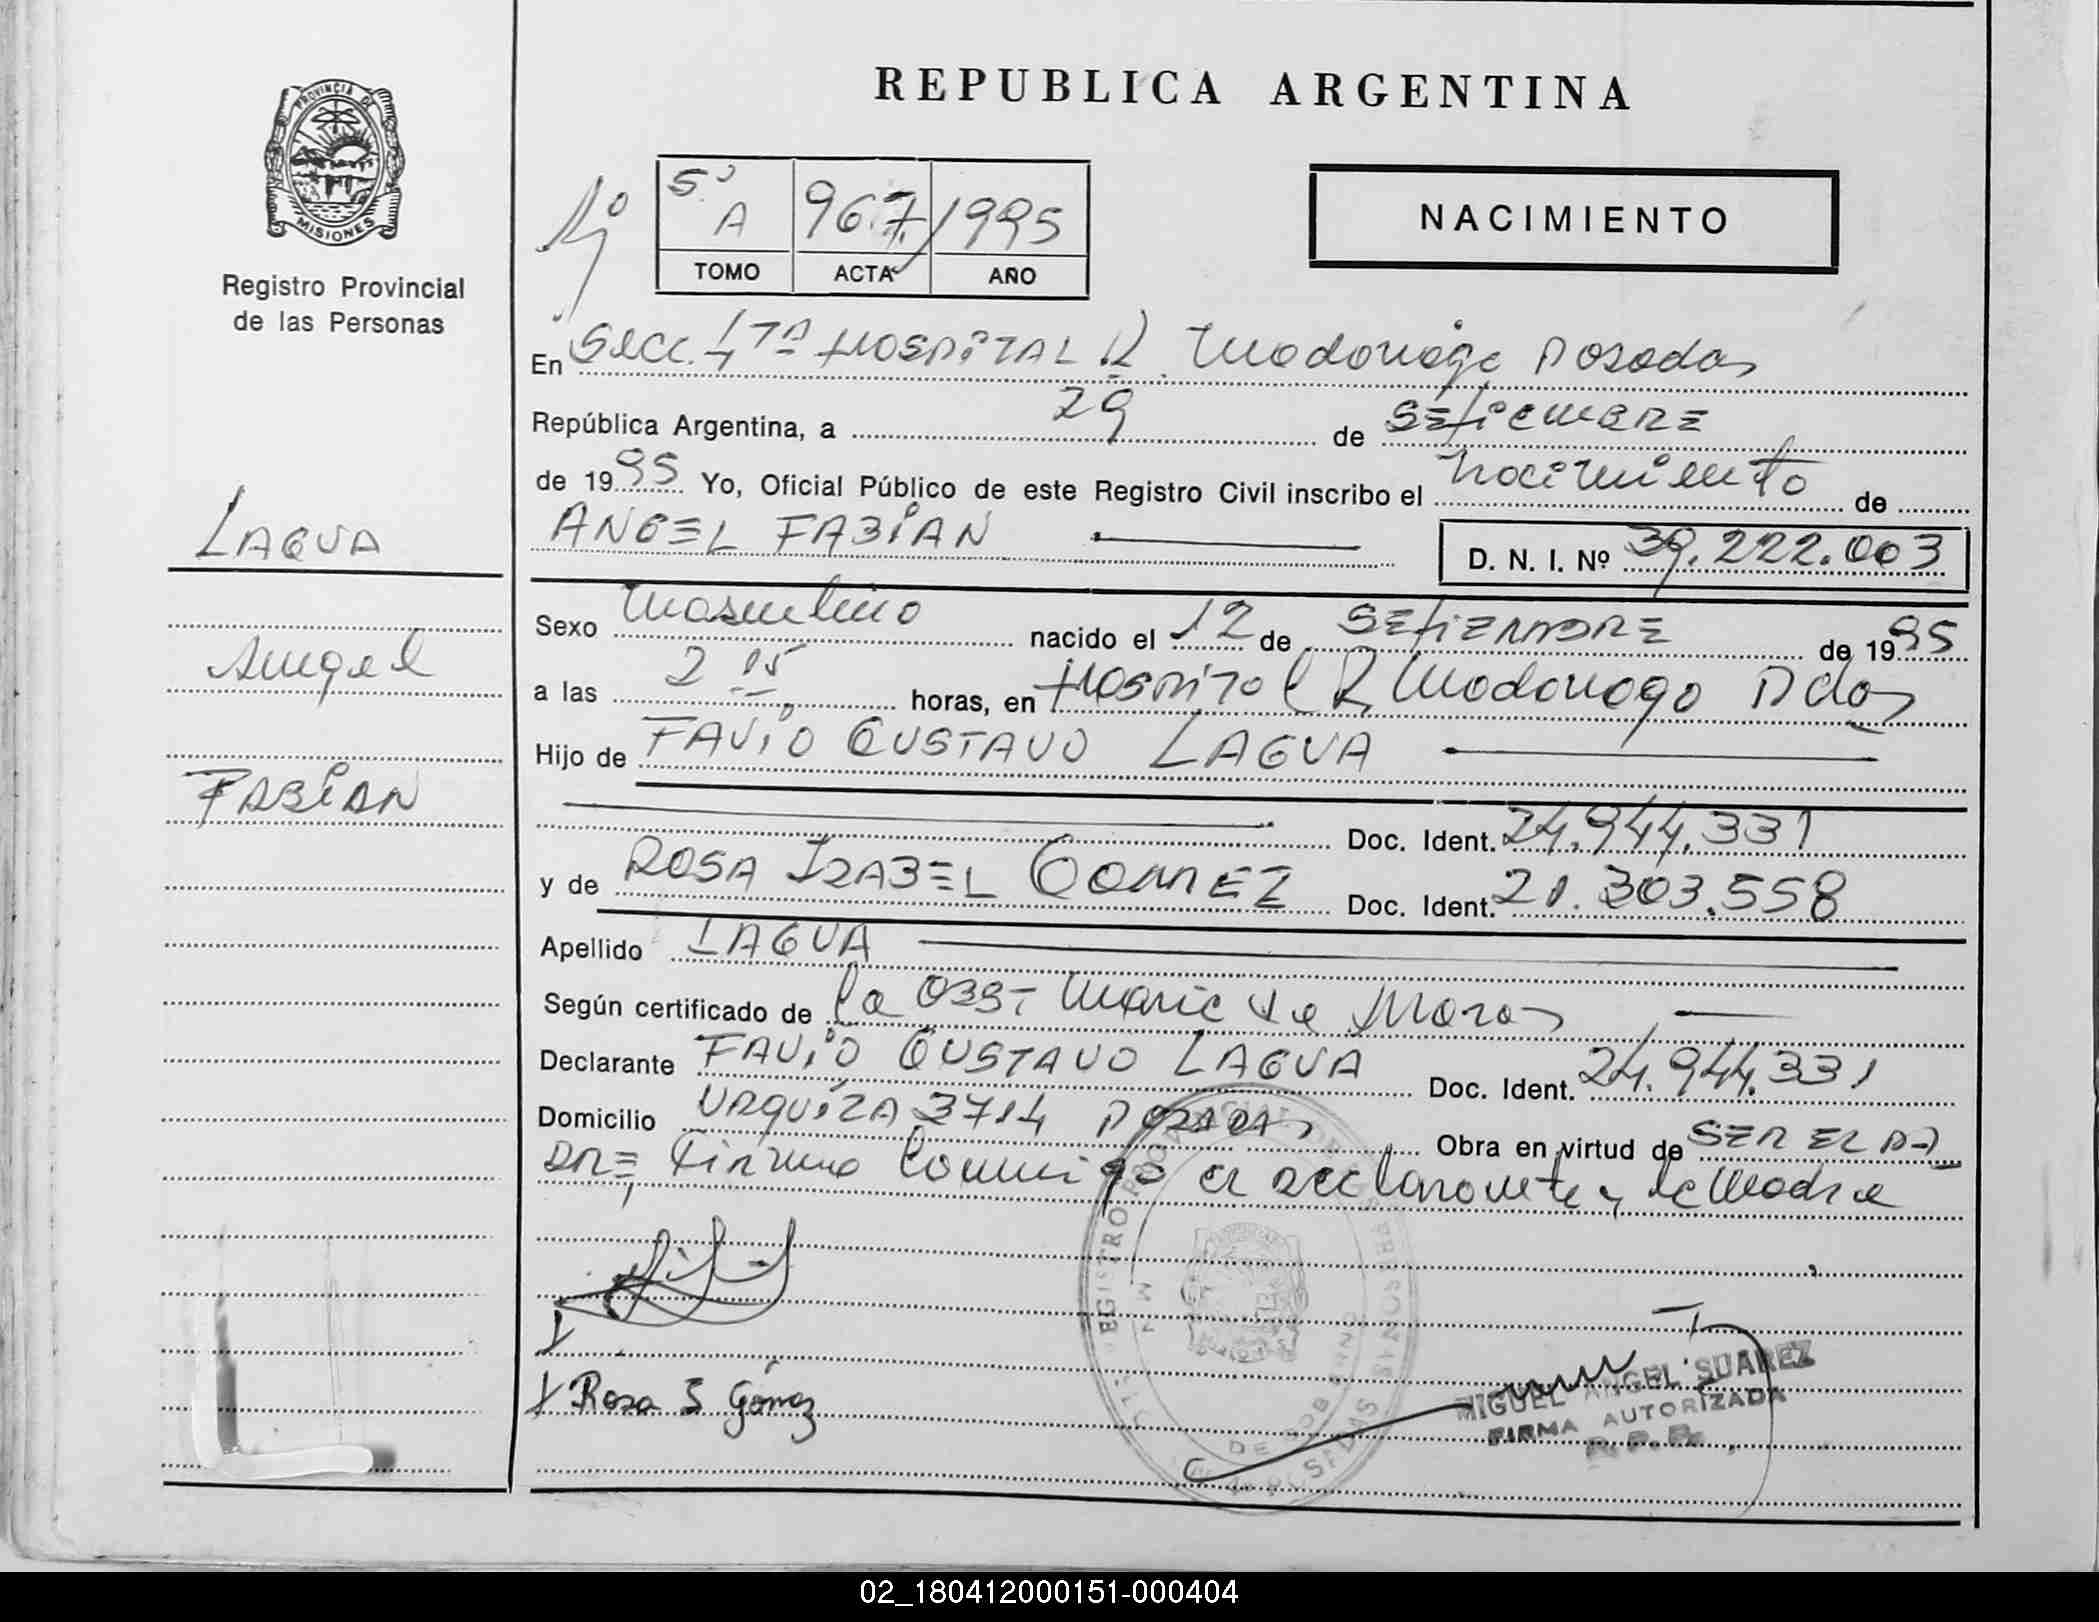 REPUBLICA ARGENTINA
PROVINCIA DE MISIONES
Registro Provincial
de las Personas
Nº
5º A 967 1995
TOMO ACTA AÑO
NACIMIENTO
En Secc. 4TA HOSPITAL R. Madariaga Posadas
República Argentina, a 29 de SETIEMBRE
de 1995 Yo, Oficial Público de este Registro Civil inscribo el nacimiento de
ANGEL FABIAN
D. N. I. Nº 39.222.003
LAGUA
Angel
FABIAN
Sexo masculino nacido el 12 de SETIEMBRE de 1995
a las 2 15 horas, en HOSPITAL R Madariaga Pdas
Hijo de FAVIO GUSTAVO LAGUA
Doc. Ident. 24.944.331
y de ROSA IZABEL GOMEZ Doc. Ident. 21.303.558
Apellido LAGUA
Según certificado de la OBST Maria de Moras
Declarante FAVIO GUSTAVO LAGUA Doc. Ident. 24.944.331
Domicilio URQUIZA 3714 POSADAS Obra en virtud de SER EL PA
DRE, Firma conmigo el declarante y la Madre
Rosa I Gómez
MIGUEL ANGEL SUAREZ
FIRMA AUTORIZADA
R. P. P.
02_180412000151-000404